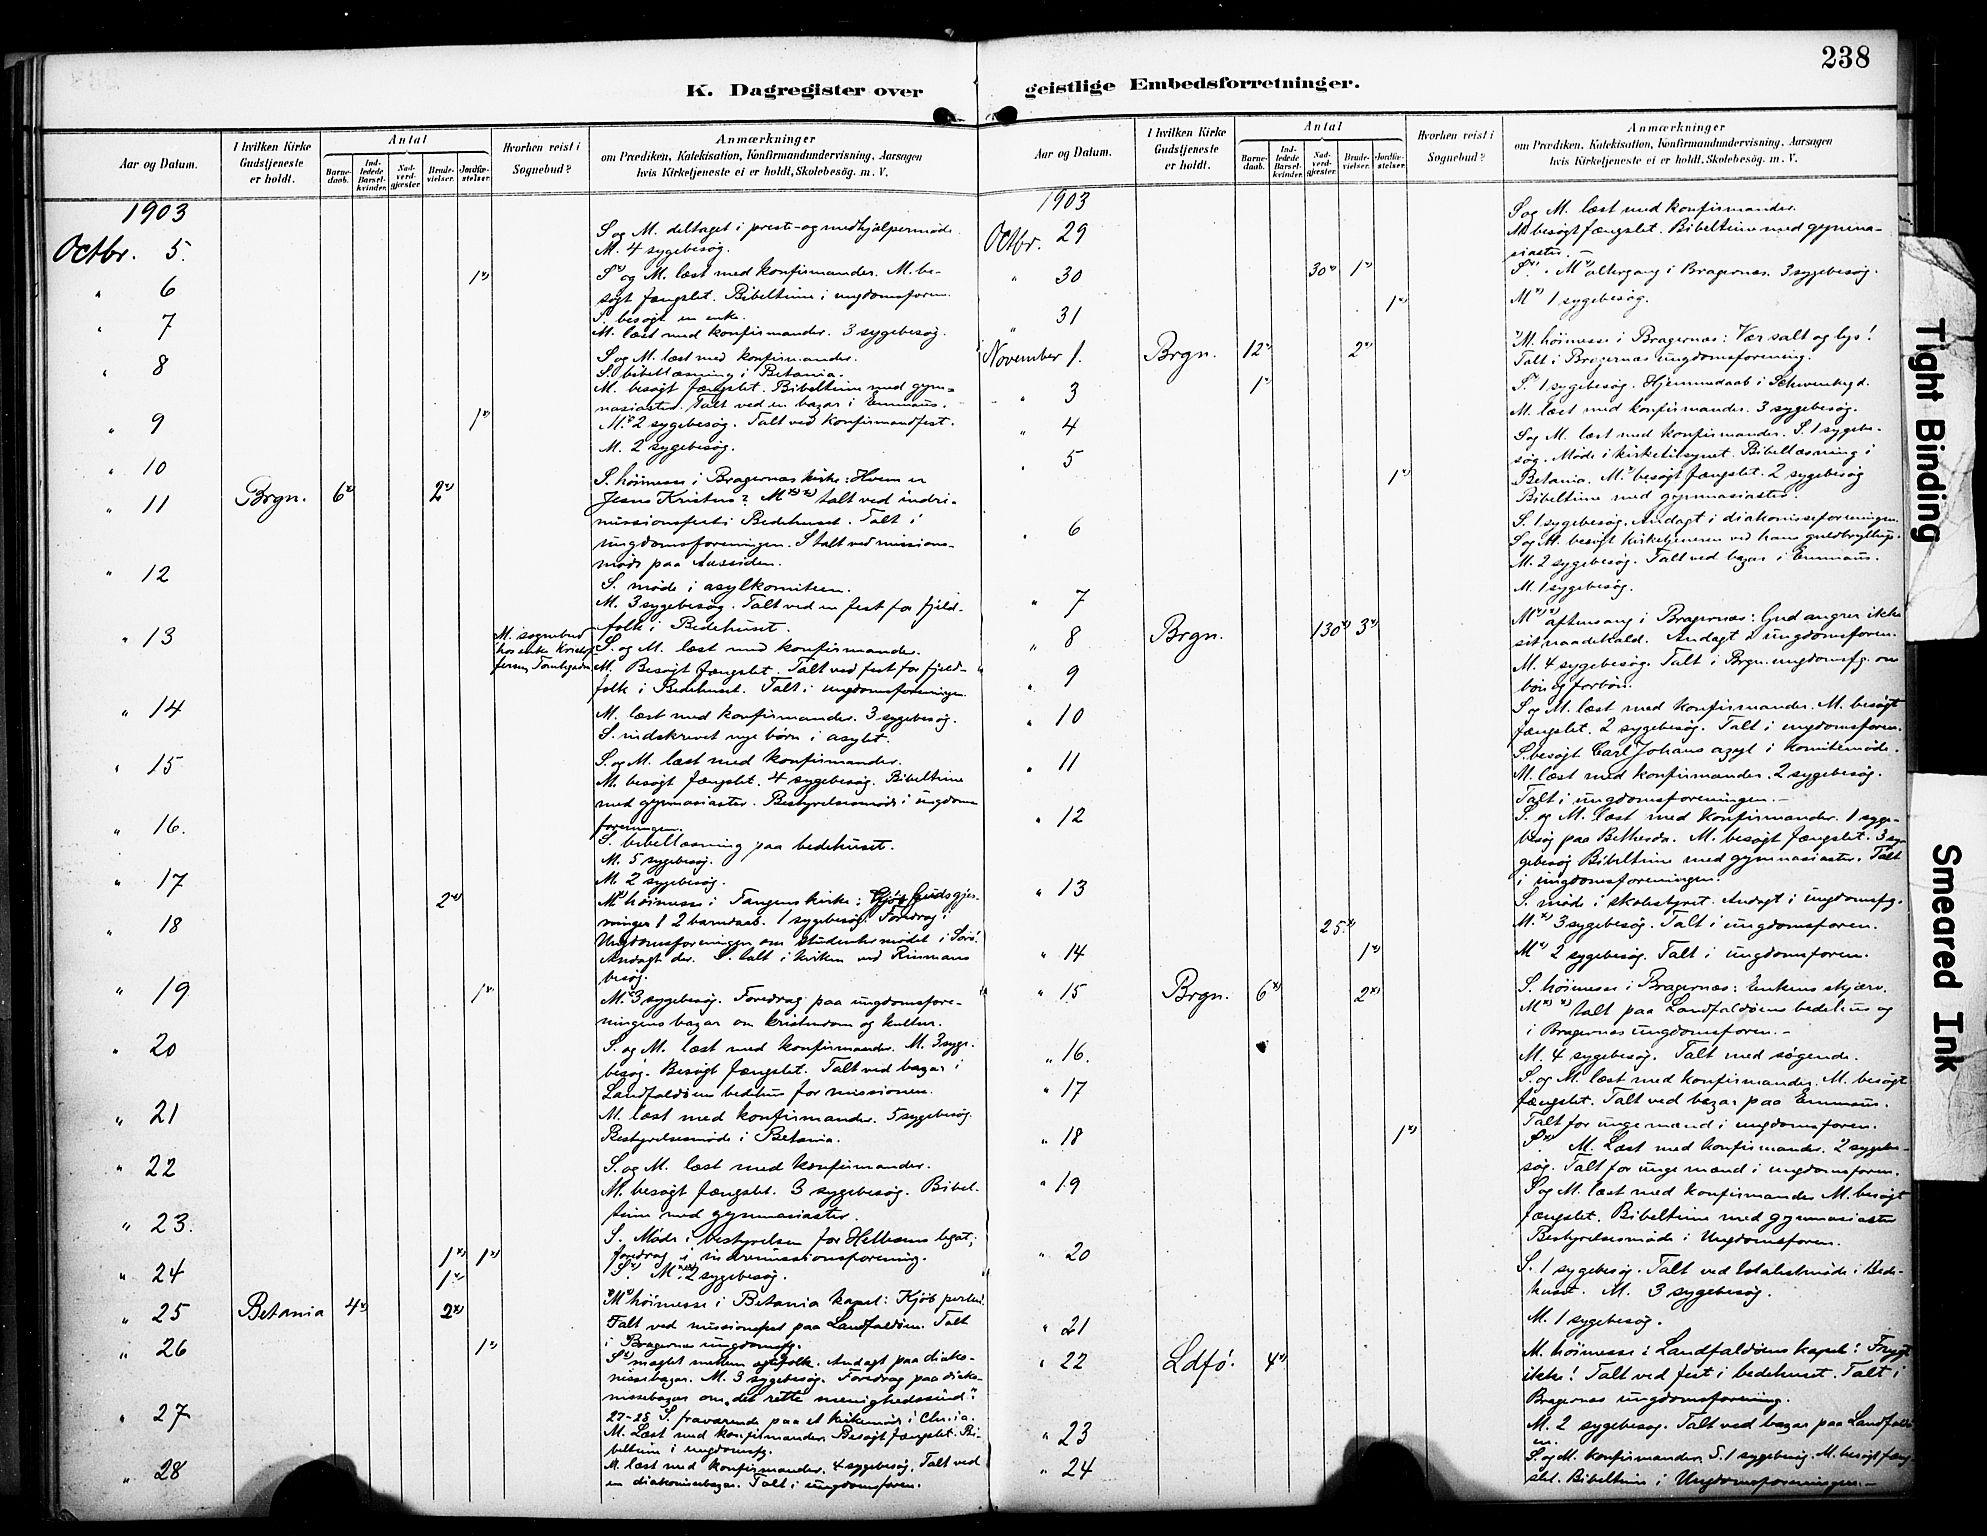 238
K. Dagregister over
geistlige Embedsforretninger.
Aar og Datum.
I hvilken Kirke Gudstjeneste er holdt.
Antal
Barnedaab.
Indledede Barselkvinder.
Nadverdgjester
Brudevielser.
Jordfæstelser.
Hvorhen reist i Sognebud?
Anmærkninger
om Prædiken, Katekisation, Konfirmandundervisning, Aarsagen
hvis Kirketjeneste ei er holdt, Skolebesög. m. V.
1903
Octbr. 5.
S og M. deltaget i prest- og medhjælpermøde.
M. 4 sygebesøg.
" 6 1
S og M. læst med konfirmander. M. be-
søgt fængslet. Bibeltime i ungdomsforen.
S. besøgt en enke.
" 7
M. læst med konfirmander. 3 sygebesøg.
" 8
S og M. læst med konfirmander.
S. bibellæsning i Betania.
M. besøgt fængslet. Bibeltime med gym-
nasiaster. Talt ved en bazar i Emmaus.
" 9 1
M. 2 sygebesøg. Talt ved konfirmandfest.
" 10
M. 2 sygebesøg.
" 11 Brgn. 6 2
S. høimesse i Bragernes kirke: Hvem er
Jesus Kristus? M talt ved indre-
missionsfest i Bedehuset. Talt i
ungdomsforeningen. S talt ved missions-
møde paa Aassiden.
" 12
S. møde i asylkomiteen.
M. 3 sygebesøg. Talt ved en fest for fjeld-
folk i Bedehuset.
" 13
M. sognebud
hos enke
S. og M. læst med konfirmander.
M. Besøgt fængslet. Talt ved fest for fjeld-
folk i Bedehuset. Talt i ungdomsforeningen.
" 14
M. læst med konfirmander. 3 sygebesøg.
S. indskrevet nye børn i asylet.
" 15
S. og M. læst med konfirmander.
M. besøgt fængslet. 4 sygebesøg. Bibeltime
med gymnasiaster. Bestyrelsesmøde i ungdoms
foreningen.
" 16.
S. bibellæsning paa bedehuset.
M. 5 sygebesøg.
" 17
M. 2 sygebesøg.
" 18 2
M høimesse i Tangens kirke: Guds gjer-
ninger 1 2 barnedaab. 1 sygebesøg. Foredrag i
Ungdomsforeningen om studentermødet i Sorø.
Andagt der. S. talt i kirken ved
besøg.
" 19 1
M. 3 sygebesøg. Foredrag paa ungdomsfore-
ningens bazar om kristendom og kultur.
" 20
S. og M. læst med konfirmander. M. 3 syge-
besøg. Besøgt fængslet. Talt ved bazar i
Landfaldøens bedehus for missionen.
" 21
M. læst med konfirmander. 5 sygebesøg.
Bestyrelsesmøde i Betania.
" 22
S. og M. læst med konfirmander.
M. besøgt fængslet. 3 sygebesøg. Bibel-
time med gymnasiaster.
" 23.
S. Møde i bestyrelsen for legat;
foredrag i indremissionsforening.
1 1
" 24 1
S. M. 2 sygebesøg.
" 25 Betania 4 2
M høimesse i Betania kapel: Kjøb perlen!
Talt ved missionsfest paa Landfaldøen. Talt
i Bragernes ungdomsfg.
" 26 1
S mæglet mellem egtefolk. Andagt paa diako-
nissebazar. M. 3 sygebesøg. Foredrag paa diako-
nissebazar om "det rette menighedssind".
" 27
27-28 S. fraværende paa et kirkemøde i Chr.ia.
M. Læst med konfirmander. Besøgt fængslet. Bi-
beltime i ungdomsfg.
" 28
M. læst med konfirmander. 4 sygebesøg. Talt ved
en diakonissebazar. Talt i ungdomsforen.
Aar og Datum.
I hvilken Kirke Gudstjeneste er holdt.
Antal
Barnedaab.
Indledede Barselkvinder.
Nadverdgjester
Brudevielser.
Jordfæstelser.
Hvorhen reist i Sognebud?
Anmærkninger
om Prædiken, Katekisation, Konfirmandundervisning, Aarsagen
hvis Kirketjeneste ei er holdt, Skolebesög. m. V.
1903
Octbr. 29
S og M. læst med konfirmander.
M besøgt fængslet. Bibeltime med gymna-
siaster.
" 30 30 1
S. M altergang i Bragernæs. 3 sygebesøg.
" 31 1
M 1 sygebesøg.
November 1. Brgn. 12 2
M. høimesse i Bragernes: Vær salt og lys!
Talt i Bragernæs ungdomsforening.
" 3 1
S. 1 sygebesøg. Hjemmedaab i
M. læst med konfirmander. 3 sygebesøg.
" 4
S og M. læst med konfirmander. S. 1 sygebe-
søg. Møde i kirketilsynet. Bibellæsning i
" 5 1
Betania. M. besøgt fængslet. 2 sygebesøg
Bibeltime med gymnasiaster.
" 6
S. 1 sygebesøg. Andagt i diakonisseforeningen.
S og M. besøgt kirketjeneren ved hans guldbryllup.
M. 2 sygebesøg. Talt ved bazar i Emmaus.
" 7
M. 1 sygebesøg.
" 8 Brgn. 130 3
M aftensang i Bragernæs: Gud angrer ikke
sit naadekald. Andagt i ungdomsforen.
" 9
M. 4 sygebesøg. Talt i Brgn. ungdomsfg. om
bøn og forbøn.
" 10
S og M. læst med konfirmander. M. besøgt
fængslet. 2 sygebesøg. Talt i ungdomsforen.
" 11
S. besøgt Carl Johans asyl i komitemøde.
M. læst med konfirmander. 2 sygebesøg.
Talt i ungdomsforeningen.-
" 12
S. og M. læst med konfirmander. 1 syge-
besøg paa Bethesda. M. besøgt fængslet. 3 sy-
gebesøg Bibeltime med gymnasiaster. Talt
i ungdomsforeningen.
" 13
S. møde i skolestyret. Andagt i ungdomsfg.
25
M. 3 sygebesøg. Talt i ungdomsforen.
" 14 1
M 2 sygebesøg. Talt i ungdomsforen.
" 15 Brgn. 6 2
S. høimesse i Bragernæs: Enkens skjærv.
M talt paa Landfaldøens bedehus og
i Bragernæs ungdomsforen.-
" 16.
M. 4 sygebesøg. Talt med søgende.
" 17
S. og M. læst med konfirmander. M. besøgt
fængslet. Talt ved bazar paa Emmaus.
Talt for unge mænd i ungdomsforen.
" 18 1
S. M. Læst med konfirmander. 2 sygebe-
søg. Talt for unge mænd i ungdomsforen.
" 19
S og M. læst med konfirmander M. besøgt
fængslet. Bibeltime med gymnasiaster
Bestyrelsesmøde i Ungdomsforen.
" 20
S. 1 sygebesøg. Talt ved totalistmøde i Bede-
huset. M. 3 sygebesøg.
" 21
M. 1 sygebesøg.
" 22 Ldfø. 4
M. høimesse i Landfaldøens kapel: Frygt
ikke! Talt ved fest i bedehuset. Talt i
Bragernes ungdomsforening.
" 23
M. 2 sygebesøg. Talt ved bazar paa Landfaldø-
en.
" 24
S. og M. konfirmander. S. 1 sygebesøg. M. besøgt fæng
slet. Bibeltime i Ungdomsforeningen.-
Tight Binding
Smeared Ink